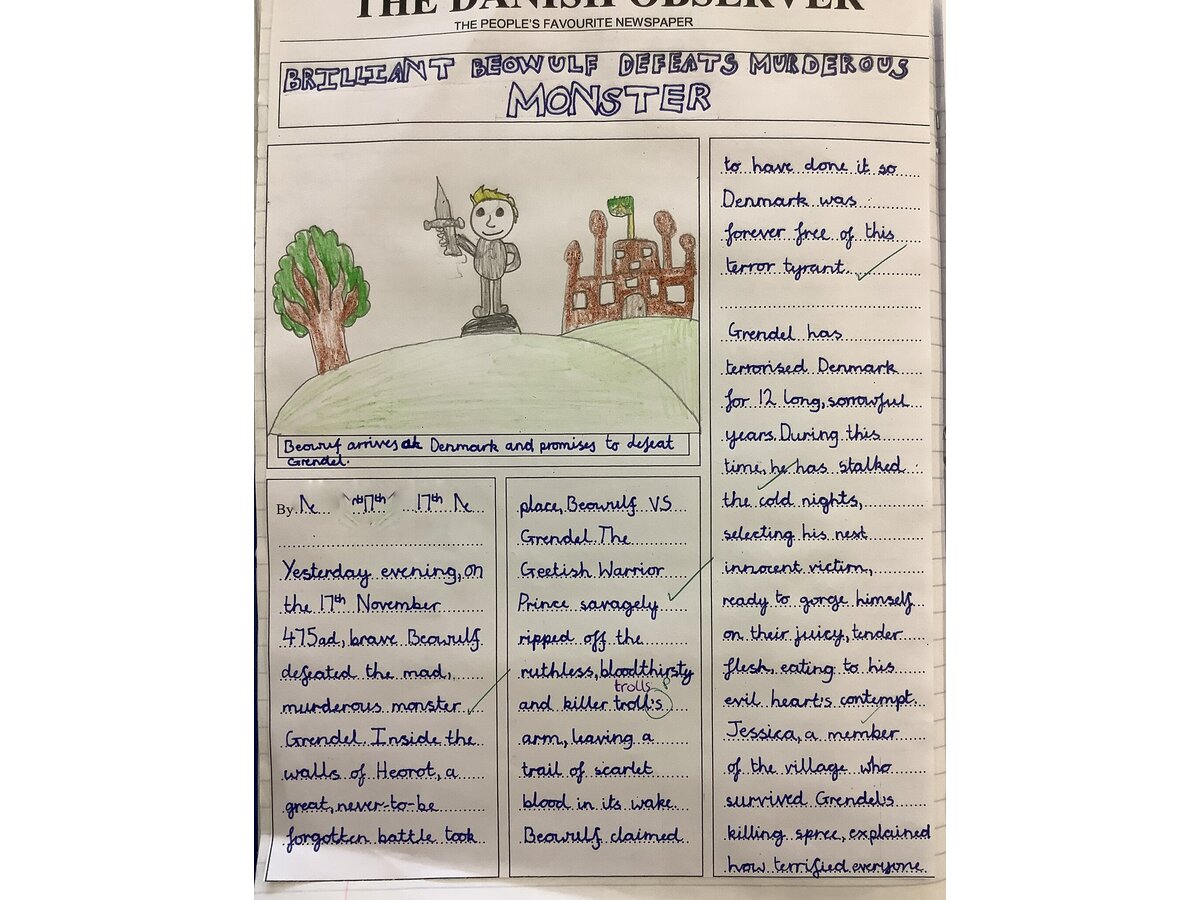 THE DANISH OBSERVER
THE PEOPLE'S FAVOURITE NEWSPAPER
BRILLIANT BEOWULF DEFEATS MURDEROUS
MONSTER
Beowulf arrives at Denmark and promises to defeat
Grendel.
By
17th
Yesterday evening, on
the 17th November
475ad, brave Beowulf
defeated the mad,
murderous monster
Grendel. Inside the
walls of Heorot, a
great, never-to-be
forgotten battle took
place, Beowulf VS
Grendel. The
Geetish Warrior
Prince savagely
ripped off the
ruthless, bloodthirsty
trolls
and killer troll's
arm, leaving a
trail of scarlet
blood in its wake.
Beowulf claimed
to have done it so
Denmark was
forever free of this
terror tyrant.
Grendel has
terrorised Denmark
for 12 long, sorrowful
years. During this
time, he has stalked
the cold nights,
selecting his next
innocent victim,
ready to gorge himself
on their juicy, tender
flesh, eating to his
evil heart's contempt.
Jessica, a member
of the village who
survived Grendel's
killing spree, explained
how terrified everyone